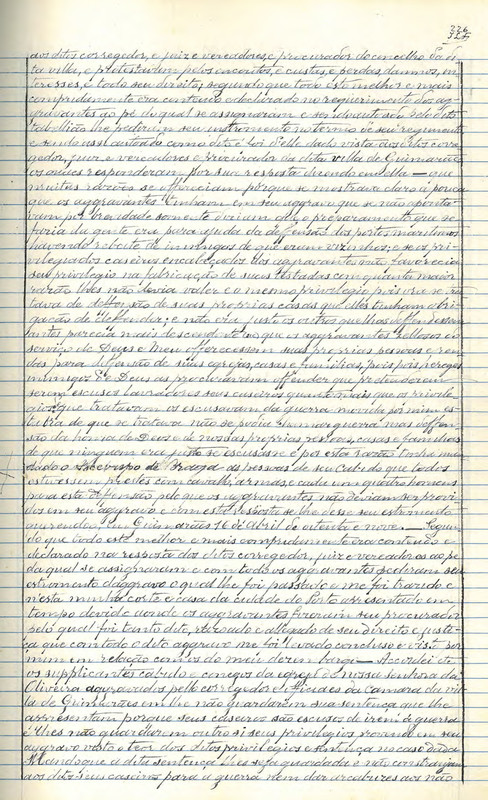 aos ditos corregedor, e juiz e vereadores, e procurador do concelho da di-
ta villa, e protestavam pelos encontros, e custas, e perdas, damnos, en-
teresses, e todo seu direito; segundo que todo esto melhor e mais
compridamente era contheudo e declarado no requerimento dos ag-
gravantes ao pé do qual se assignaram e
tabellião lhe pediram seu instrumento no termo de seu regimento
e sendo assi autoado como dito é foi delle dado vista aos ditos corre-
gedor, juiz, e vereadores e procurador da dita villa de Guimarães
os quaes responderam por sua resposta dizendo em ella — que
muitas razões se offereciam porque se mostrava claro a pouca
que os aggravantes tinham em seu aggravo que se não aponta-
vam por brevidade somente diriam que o preparamento que se
fazia de gente era para ajuda da deffensão dos portos maritimos
havendo rebate de inimigos de que eram vizinhos; e se os pri-
vilegiados caseiros encabeçados dos aggravantes não favorecia
seu privilegio na fabricação de suas testadas com quanta maior
razão lhes não devia valer o mesmo privilegio pois ora se tra-
tava de deffensão de suas proprias casas que elles tinham obri-
gação de deffender; e não era justo os outros
antes parecia mais descendente que os aggravantes zellosos do
serviço de Deus e Meu offerecessem suas proprias pessoas e ren-
das para deffensão de suas egrejas, casas e familias, pois
inimigos de Deus as procuravam offender que pretenderem
serem escusos lavradores seus caseiros quanto mais que os privile-
gios que tratavam os escusavam da guerra movida por mim es-
tra de que se tratava não se podia chamar guerra mas deffen-
são da honra de Deus e de nossas proprias pessoas, casas e familias
de que ninguem era justo se escusasse e por esta razão tinha man-
dado o Arcebispo de Braga as pessoas de seu Cabido que todos
estivessem prestes com cavallos, armas, e cada um quatro homens
para esta deffensão pelo que os aggravantes não deviam ser provi-
dos em seu aggravo e com esta resposta se lhe desse seu estromento
querendo. Em Guimarães 10 de Abril de oitenta e nove. — Segun-
do que todo esto melhor e mais compridamente era contheudo e
declarado na resposta dos ditos corregedor, juiz e vereadores ao pé
da qual se assignaram e com todo os aggravantes pediram seu
estromento d'aggravo o qual lhe foi passado e me foi trazido e
n'esta minha corte e casa da cidade do Porto apresentado em
tempo devido donde os aggravantes fizeram seu procurador
pelo qual foi tanto dito, razoado e allegado de seu direito e justi-
ça que com todo o dito aggravo me foi levado concluso e visto por
mim em relação com os do meu desembargo — Accordei etc
os supplicantes cabido e conegos da egreja de nossa senhora da
Oliveira aggravados pello corregedor e officiaes da Camara da vil-
la de Guimarães em lhe não guardarem sua sentença que lhe
apresentam porque seus caseiros são escusos de irem á guerra
e lhes não guardarem outro si seus privilegios provendo em seu
aggravo visto o teor dos ditos privilegios e sentença no caso dada
Mando que a dita sentença lhes seja guardada e não constranjam
aos ditos seus caseiros para a guerra nem dar arcabuzes aos não